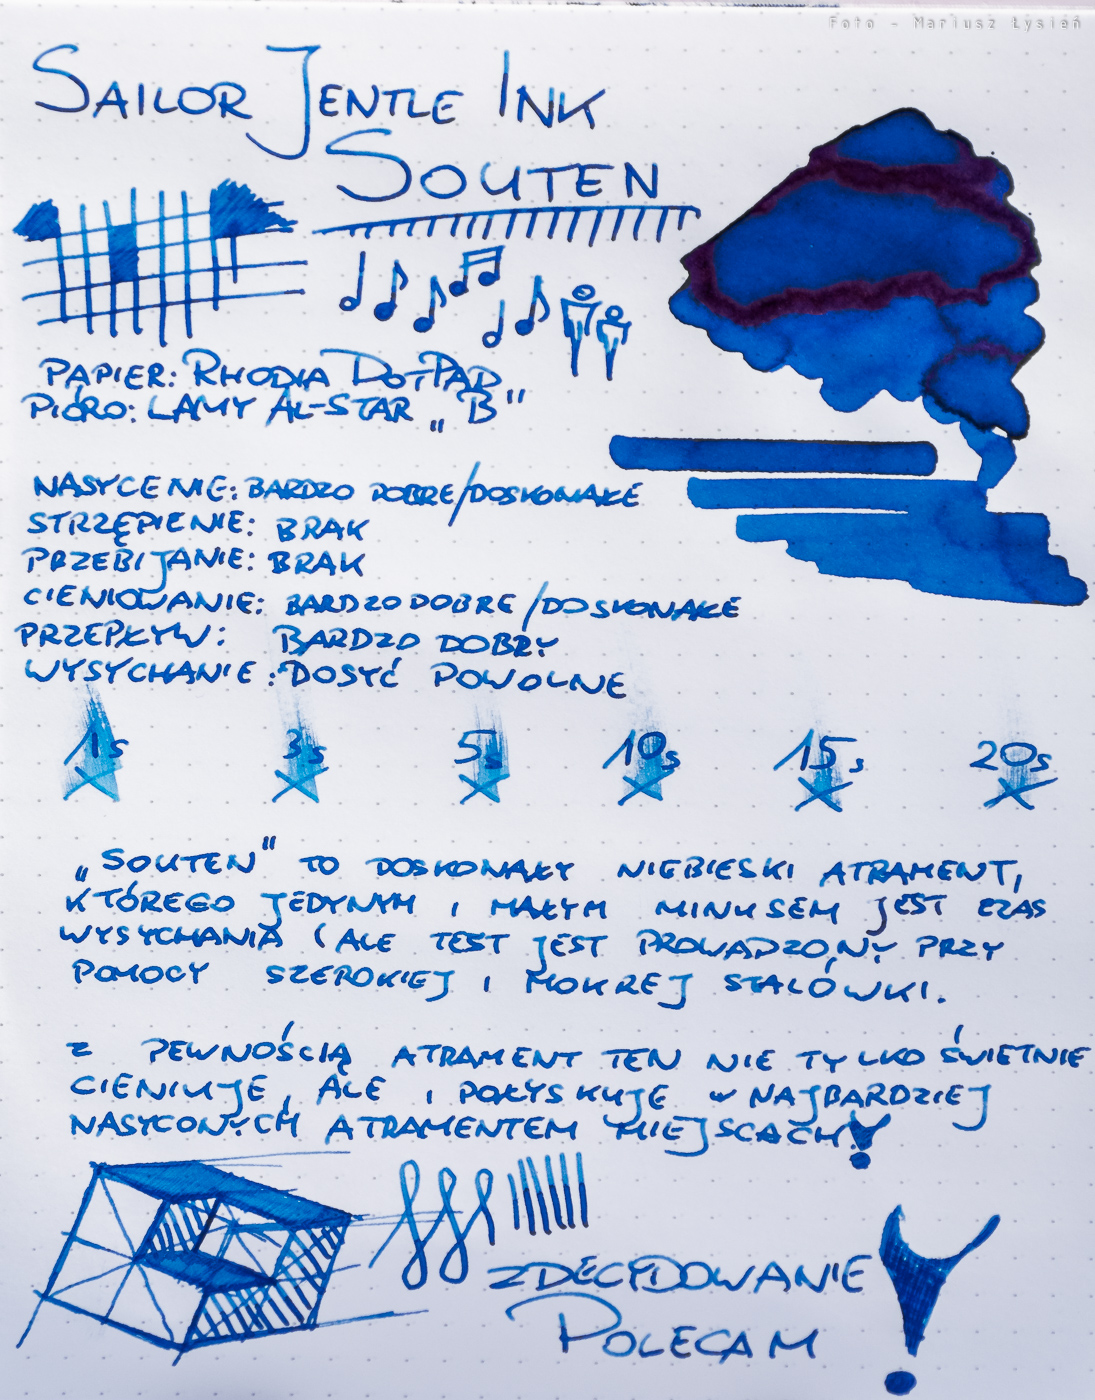 Foto - Mariusz Łysień
SAILOR JENTLE INK
SOUTEN
PAPIER: RHODIA DOTPAD
PIÓRO: LAMY AL-STAR „B"
NASYCENIE: BARDZO DOBRE/DOSKONAŁE
STRZĘPIENIE: BRAK
PRZEBIJANIE: BRAK
CIENIOWANIE: BARDZO DOBRE/DOSKONAŁE
PRZEPŁYW: BARDZO DOBRY
WYSYCHANIE: DOSYĆ POWOLNE
1s 3s 5s 10s 15s 20s
„SOUTEN" TO DOSKONAŁY NIEBIESKI ATRAMENT,
KTÓREGO JEDYNYM I MAŁYM MINUSEM JEST CZAS
WYSYCHANIA (ALE TEST JEST PROWADZONY PRZY
POMOCY SZEROKIEJ I MOKREJ STALÓWKI.
Z PEWNOŚCIĄ ATRAMENT TEN NIE TYLKO ŚWIETNIE
CIENIUJE, ALE I POŁYSKUJE W NAJBARDZIEJ
NASYCONYCH ATRAMENTEM MIEJSCACH!
ZDECYDOWANIE
POLECAM!